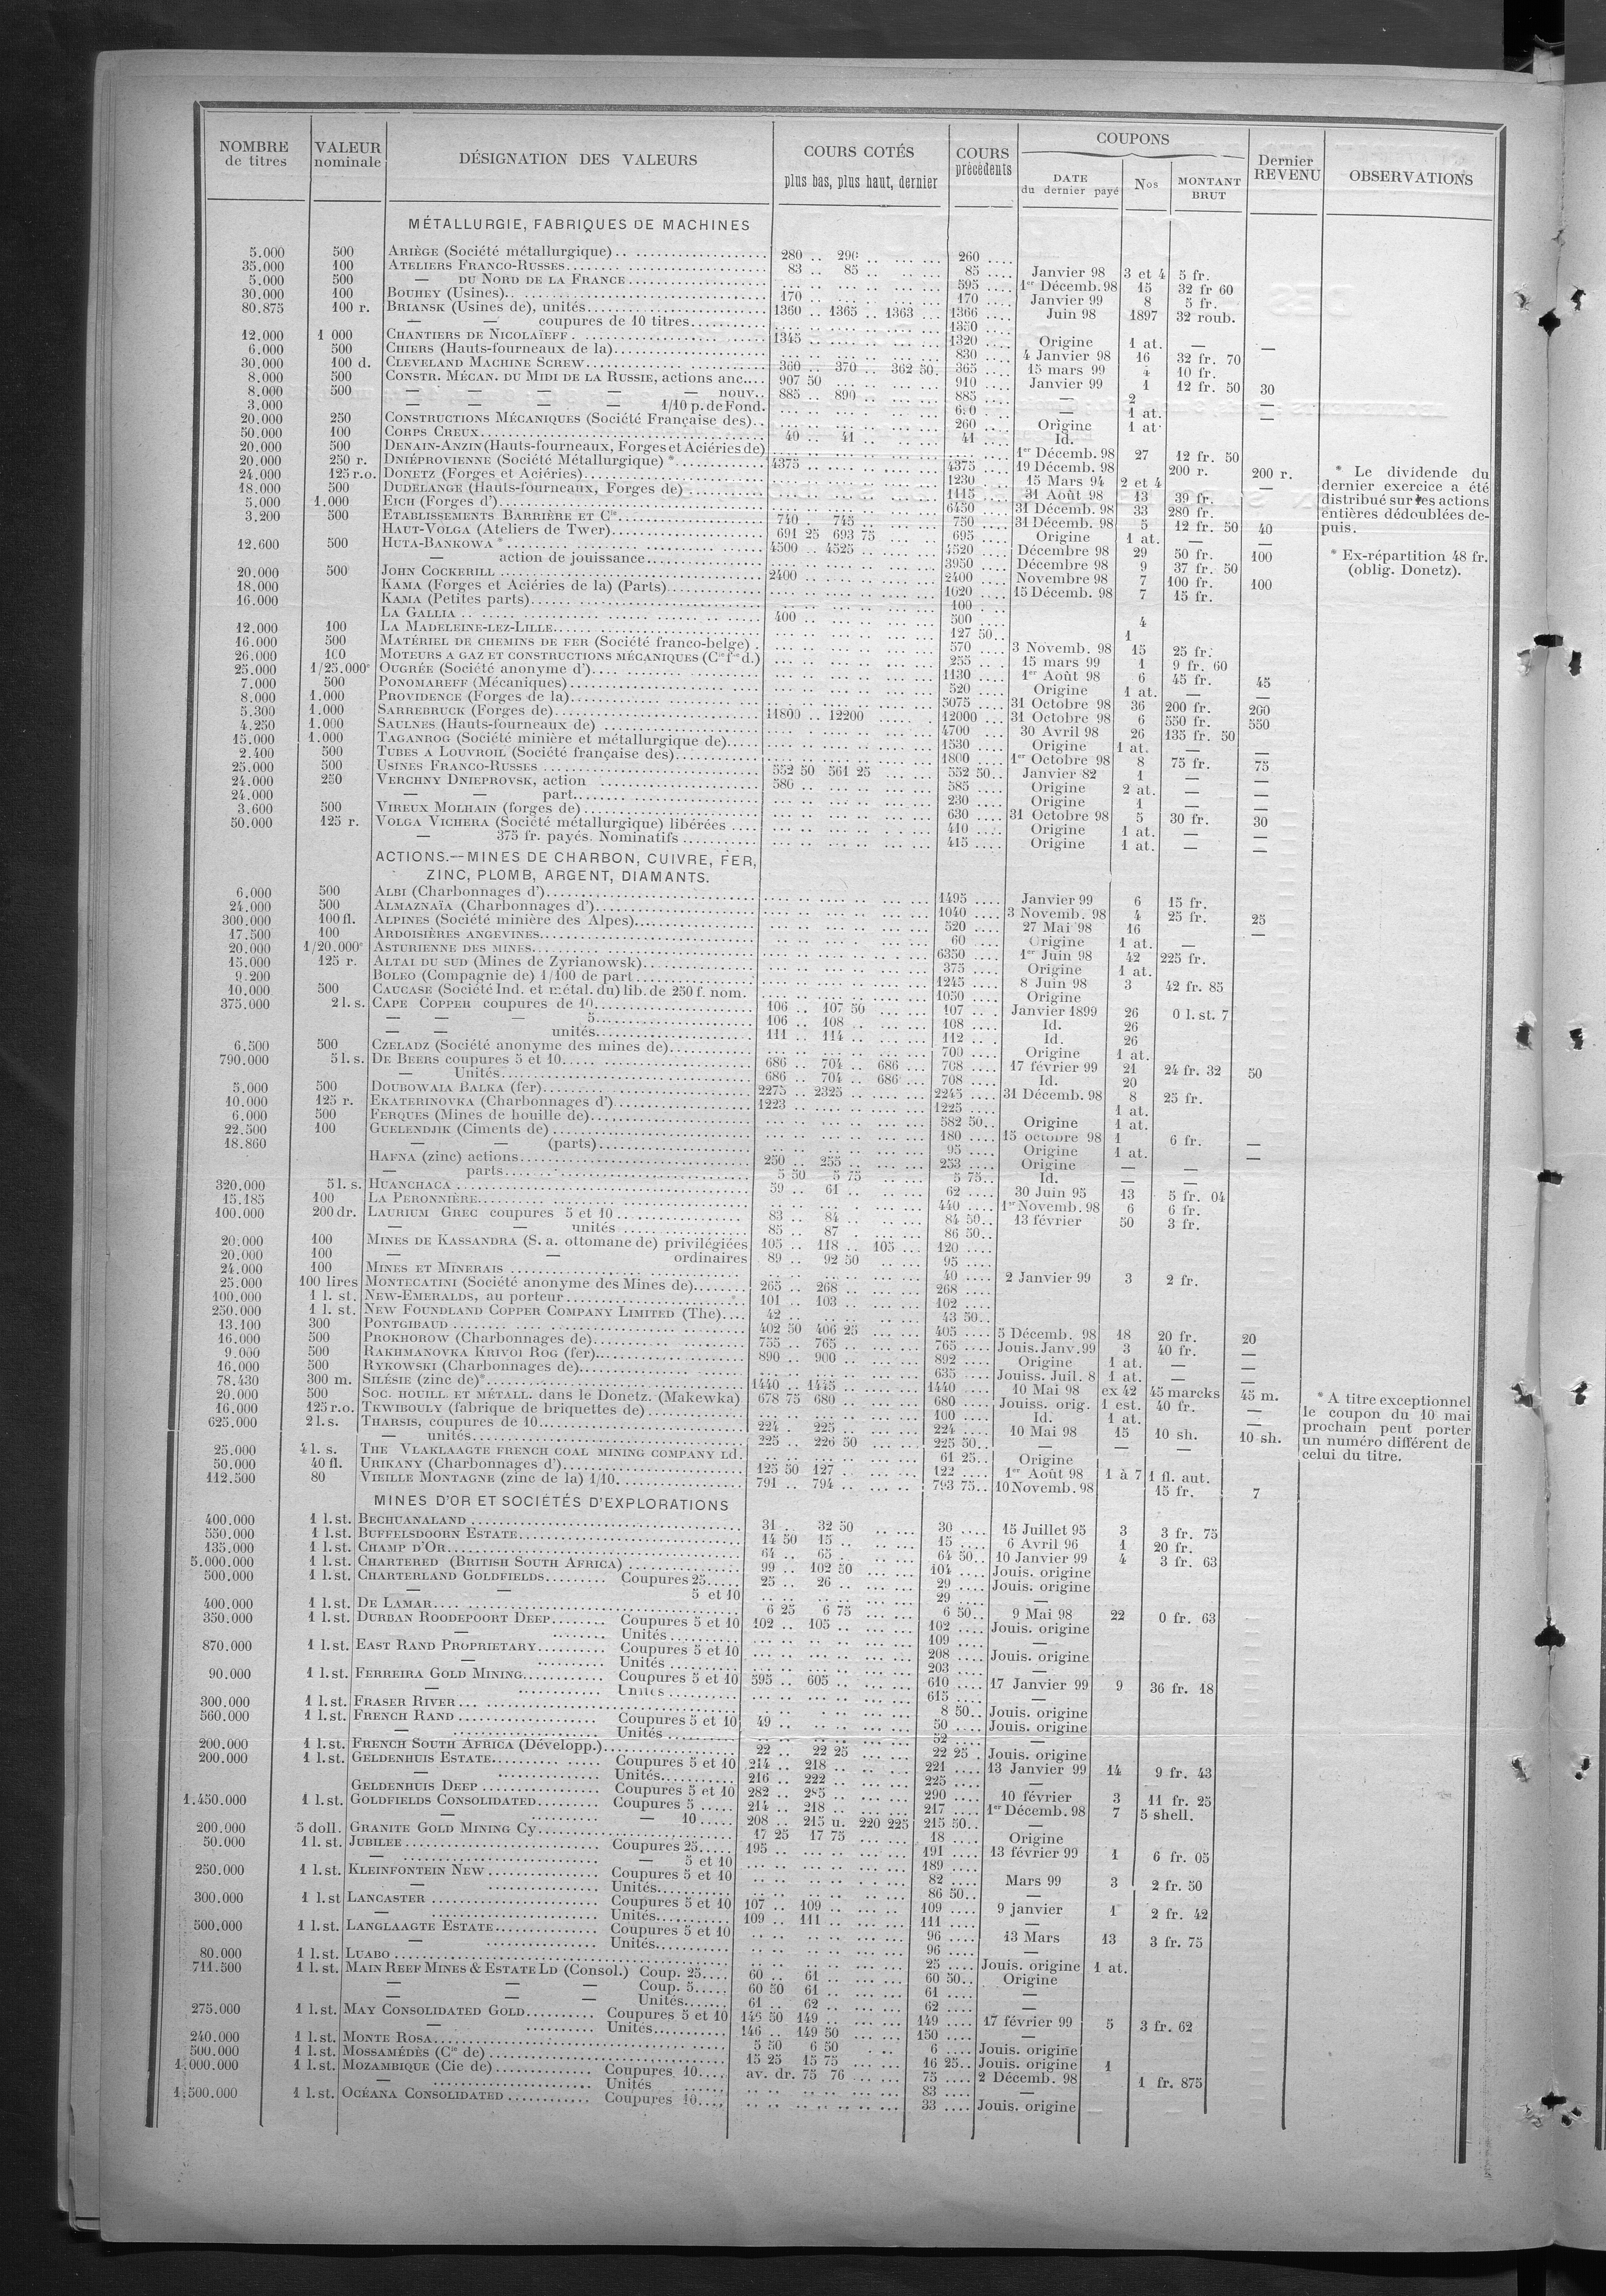 NOMBRE de titres | VALEUR nominale | DÉSIGNATION DES VALEURS | COURS COTÉS plus bas, plus haut, dernier | COURS précédents | COUPONS DATE du dernier payé | Nos | MONTANT BRUT | Dernier REVENU | OBSERVATIONS
MÉTALLURGIE, FABRIQUES DE MACHINES
5.000 500 ARIÈGE (Société métallurgique) 280 290 260
35.000 100 ATELIERS FRANCO-RUSSES 83 85 85 Janvier 98 3 et 4 5 fr.
5.000 500 — DU NORD DE LA FRANCE 595 1er Décemb. 98 15 32 fr 60
30.000 100 BOUHEY (Usines) 170 170 Janvier 99 8 5 fr.
80.875 100 r. BRIANSK (Usines de), unités 1360 1365 1363 1366 Juin 98 1897 32 roub.
— — coupures de 10 titres 1350
12.000 1 000 CHANTIERS DE NICOLAÏEFF 1345 1320 Origine 1 at. — —
6.000 500 CHIERS (Hauts-fourneaux de la) 830 4 Janvier 98 16 32 fr. 70
30.000 100 d. CLEVELAND MACHINE SCREW 360 370 362 50 365 15 mars 99 4 10 fr.
8.000 500 CONSTR. MÉCAN. DU MIDI DE LA RUSSIE, actions anc. 907 50 910 Janvier 99 1 12 fr. 50 30
8.000 500 — — — — — nouv. 885 890 885 — 2 —
3.000 — — — — 1/10 p. de Fond. — 1 at. —
20.000 250 CONSTRUCTIONS MÉCANIQUES (Société Française des) 260 Origine 1 at.
50.000 100 CORPS CREUX 40 41 41 Id.
20.000 500 DENAIN-ANZIN (Hauts-fourneaux, Forges et Aciéries de) 1er Décemb. 98 27 12 fr. 50
20.000 250 r. DNIÉPROVIENNE (Société Métallurgique) * 4375 4375 19 Décemb. 98 200 r. 200 r.
24.000 125 r.o. DONETZ (Forges et Aciéries) 1230 15 Mars 94 2 et 4 —
18.000 500 DUDELANGE (Hauts-fourneaux, Forges de) 1115 31 Août 98 13 39 fr.
5.000 1.000 EICH (Forges d') 6450 31 Décemb. 98 33 280 fr.
3.200 500 ETABLISSEMENTS BARRIÈRE ET Cie 740 745 750 31 Décemb. 98 5 12 fr. 50 40
HAUT-VOLGA (Ateliers de Twer) 691 25 693 75 695 Origine 1 at. — —
12.600 500 HUTA-BANKOWA * 4500 4525 4520 Décembre 98 29 50 fr. 100
— action de jouissance 3950 Décembre 98 9 37 fr. 50
20.000 500 JOHN COCKERILL 2400 2400 Novembre 98 7 100 fr. 100
18.000 KAMA (Forges et Aciéries de la) (Parts) 1020 15 Décemb. 98 7 15 fr.
16.000 KAMA (Petites parts) 100
LA GALLIA 400 500 4
12.000 100 LA MADELEINE-LEZ-LILLE 127 50 1
16.000 500 MATÉRIEL DE CHEMINS DE FER (Société franco-belge) 570 3 Novemb. 98 15 25 fr.
26.000 100 MOTEURS A GAZ ET CONSTRUCTIONS MÉCANIQUES (Cie fse d.) 255 15 mars 99 1 9 fr. 60
25.000 1/25.000e OUGRÉE (Société anonyme d') 1130 1er Août 98 6 45 fr. 45
7.000 500 PONOMAREFF (Mécaniques) 520 Origine 1 at. — —
8.000 1.000 PROVIDENCE (Forges de la) 5075 31 Octobre 98 36 200 fr. 200
5.300 1.000 SARREBRUCK (Forges de) 11800 12200 12000 31 Octobre 98 6 550 fr. 550
4.250 1.000 SAULNES (Hauts-fourneaux de) 4700 30 Avril 98 26 135 fr. 50
15.000 1.000 TAGANROG (Société minière et métallurgique de) 1530 Origine 1 at. — —
2.400 500 TUBES A LOUVROIL (Société française des) 1800 1er Octobre 98 8 75 fr. 75
25.000 500 USINES FRANCO-RUSSES 552 50 561 25 552 50 Janvier 82 1 — —
24.000 250 VERCHNY DNIEPROVSK, action 580 585 Origine 2 at. — —
24.000 — — part 230 Origine 1 — —
3.600 500 VIREUX MOLHAIN (forges de) 630 31 Octobre 98 5 30 fr. 30
50.000 125 r. VOLGA VICHERA (Société métallurgique) libérées 410 Origine 1 at. — —
— 375 fr. payés. Nominatifs 415 Origine 1 at. — —
* Le dividende du
dernier exercice a été
distribué sur les actions
entières dédoublées de-
puis.
* Ex-répartition 48 fr.
(oblig. Donetz).
ACTIONS.—MINES DE CHARBON, CUIVRE, FER,
ZINC, PLOMB, ARGENT, DIAMANTS.
6.000 500 ALBI (Charbonnages d') 1495 Janvier 99 6 15 fr.
24.000 500 ALMAZNAÏA (Charbonnages d') 1040 3 Novemb. 98 4 25 fr. 25
300.000 100 fl. ALPINES (Société minière des Alpes) 520 27 Mai 98 16 —
17.500 100 ARDOISIÈRES ANGEVINES 60 Origine 1 at. —
20.000 1/20.000e ASTURIENNE DES MINES 6350 1er Juin 98 42 225 fr.
15.000 125 r. ALTAI DU SUD (Mines de Zyrianowsk) 375 Origine 1 at.
9.200 BOLEO (Compagnie de) 1/100 de part 1245 8 Juin 98 3 42 fr. 85
10.000 500 CAUCASE (Société Ind. et métal. du) lib. de 250 f. nom. 1050 Origine
375.000 2 l. s. CAPE COPPER coupures de 10 106 107 50 107 Janvier 1899 26 0 l. st. 7
— — 5 106 108 108 Id. 26
— — unités 111 114 112 Id. 26
6.500 500 CZELADZ (Société anonyme des mines de) 700 Origine 1 at.
790.000 5 l. s. DE BEERS coupures 5 et 10 686 704 686 708 17 février 99 21 24 fr. 32 50
— Unités 686 704 686 708 Id. 20
5.000 500 DOUBOWAIA BALKA (fer) 2275 2325 2245 31 Décemb. 98 8 25 fr.
10.000 125 r. EKATERINOVKA (Charbonnages d') 1223 1225 1 at.
6.000 500 FERQUES (Mines de houille de) 582 50 Origine 1 at.
22.500 100 GUELENDJIK (Ciments de) 180 15 octobre 98 1 6 fr. —
18.860 — — (parts) 95 Origine 1 at. —
HAFNA (zinc) actions 250 255 253 Origine — —
— parts 5 50 5 75 5 75 Id. — —
320.000 5 l. s. HUANCHACA 59 61 62 30 Juin 95 13 5 fr. 04
15.185 100 LA PERONNIÈRE 440 1er Novemb. 98 6 6 fr.
100.000 200 dr. LAURIUM GREC coupures 5 et 10 83 84 84 50 13 février 50 3 fr.
— — unités 85 87 86 50
20.000 100 MINES DE KASSANDRA (S. a. ottomane de) privilégiées 105 118 105 120
20.000 100 — — ordinaires 89 92 50 95
24.000 100 MINES ET MINERAIS 40 2 Janvier 99 3 2 fr.
25.000 100 lires MONTECATINI (Société anonyme des Mines de) 265 268 268
100.000 1 l. st. NEW-EMERALDS, au porteur 101 103 102
250.000 1 l. st. NEW FOUNDLAND COPPER COMPANY LIMITED (The) 42 43 50
13.100 300 PONTGIBAUD 402 50 406 25 405 5 Décemb. 98 18 20 fr. 20
16.000 500 PROKHOROW (Charbonnages de) 755 765 765 Jouis. Janv. 99 3 40 fr. —
9.000 500 RAKHMANOVKA KRIVOI ROG (fer) 890 900 892 Origine 1 at. — —
16.000 500 RYKOWSKI (Charbonnages de) 635 Jouiss. Juil. 8 1 at. — —
78.430 300 m. SILÉSIE (zinc de)* 1440 1445 1440 10 Mai 98 ex 42 45 marcks 45 m.
20.000 500 SOC. HOUILL. ET MÉTALL. dans le Donetz. (Makewka) 678 75 680 680 Jouiss. orig. 1 est. 40 fr. —
16.000 125 r.o. TKWIBOULY (fabrique de briquettes de) 100 Id. 1 at. — —
625.000 2 l. s. THARSIS, coupures de 10 224 225 224 10 Mai 98 15 10 sh. 10 sh.
— unités 225 226 50 225 50 — — —
25.000 4 l. s. THE VLAKLAAGTE FRENCH COAL MINING COMPANY Ld. 61 25 Origine
50.000 40 fl. URIKANY (Charbonnages d') 125 50 127 122 1er Août 98 1 à 7 1 fl. aut.
112.500 80 VIEILLE MONTAGNE (zinc de la) 1/10 791 794 793 75 10 Novemb. 98 15 fr. 7
* A titre exceptionnel
le coupon du 10 mai
prochain peut porter
un numéro différent de
celui du titre.
MINES D'OR ET SOCIÉTÉS D'EXPLORATIONS
400.000 1 l.st. BECHUANALAND 31 32 50 30 15 Juillet 95 3 3 fr. 75
550.000 1 l.st. BUFFELSDOORN ESTATE 14 50 15 15 6 Avril 96 1 20 fr.
135.000 1 l.st. CHAMP D'OR 64 65 64 50 10 Janvier 99 4 3 fr. 63
5.000.000 1 l.st. CHARTERED (BRITISH SOUTH AFRICA) 99 102 50 104 Jouis. origine
500.000 1 l.st. CHARTERLAND GOLDFIELDS Coupures 25 25 26 29 Jouis. origine
— — 5 et 10 29 —
400.000 1 l.st. DE LAMAR 6 25 6 75 6 50 9 Mai 98 22 0 fr. 63
350.000 1 l.st. DURBAN ROODEPOORT DEEP Coupures 5 et 10 102 105 102 Jouis. origine
— Unités 109 —
870.000 1 l.st. EAST RAND PROPRIETARY Coupures 5 et 10 208 Jouis. origine
— Unités 203 —
90.000 1 l.st. FERREIRA GOLD MINING Coupures 5 et 10 595 605 610 17 Janvier 99 9 36 fr. 18
— Unités 615 —
300.000 1 l.st. FRASER RIVER 8 50 Jouis. origine
560.000 1 l.st. FRENCH RAND Coupures 5 et 10 49 50 Jouis. origine
— Unités 52 —
200.000 1 l.st. FRENCH SOUTH AFRICA (Développ.) 22 22 25 22 25 Jouis. origine
200.000 1 l.st. GELDENHUIS ESTATE Coupures 5 et 10 214 218 221 13 Janvier 99 14 9 fr. 43
— Unités 216 222 225 —
GELDENHUIS DEEP Coupures 5 et 10 282 285 290 10 février 3 11 fr. 25
1.450.000 1 l.st. GOLDFIELDS CONSOLIDATED Coupures 5 214 218 217 1er Décemb. 98 7 5 shell.
— — 10 208 215 u. 220 225 215 50 —
200.000 5 doll. GRANITE GOLD MINING Cy 17 25 17 75 18 Origine
50.000 1 l. st. JUBILEE Coupures 25 195 191 13 février 99 1 6 fr. 05
— — 5 et 10 189
250.000 1 l.st. KLEINFONTEIN NEW Coupures 5 et 10 82 Mars 99 3 2 fr. 50
— Unités 86 50 —
300.000 1 l.st LANCASTER Coupures 5 et 10 107 109 109 9 janvier 1 2 fr. 42
— Unités 109 111 111 —
500.000 1 l.st. LANGLAAGTE ESTATE Coupures 5 et 10 96 13 Mars 13 3 fr. 75
— Unités 96 —
80.000 1 l.st. LUABO 25 Jouis. origine 1 at.
711.500 1 l.st. MAIN REEF MINES & ESTATE LD (Consol.) Coup. 25 60 61 60 50 Origine
— — — Coup. 5 60 50 61 61 —
— — — Unités 61 62 62 —
275.000 1 l.st. MAY CONSOLIDATED GOLD Coupures 5 et 10 146 50 149 149 17 février 99 5 3 fr. 62
— Unités 146 149 50 150 —
240.000 1 l.st. MONTE ROSA 5 50 6 50 6 Jouis. origine
500.000 1 l.st. MOSSAMÉDÈS (Cie de) 15 25 15 75 16 25 Jouis. origine 1
1.000.000 1 l.st. MOZAMBIQUE (Cie de) Coupures 10 av. dr. 75 76 75 2 Décemb. 98 1 fr. 875
— Unités 83 —
1.500.000 1 l.st. OCÉANA CONSOLIDATED Coupures 10 33 Jouis. origine